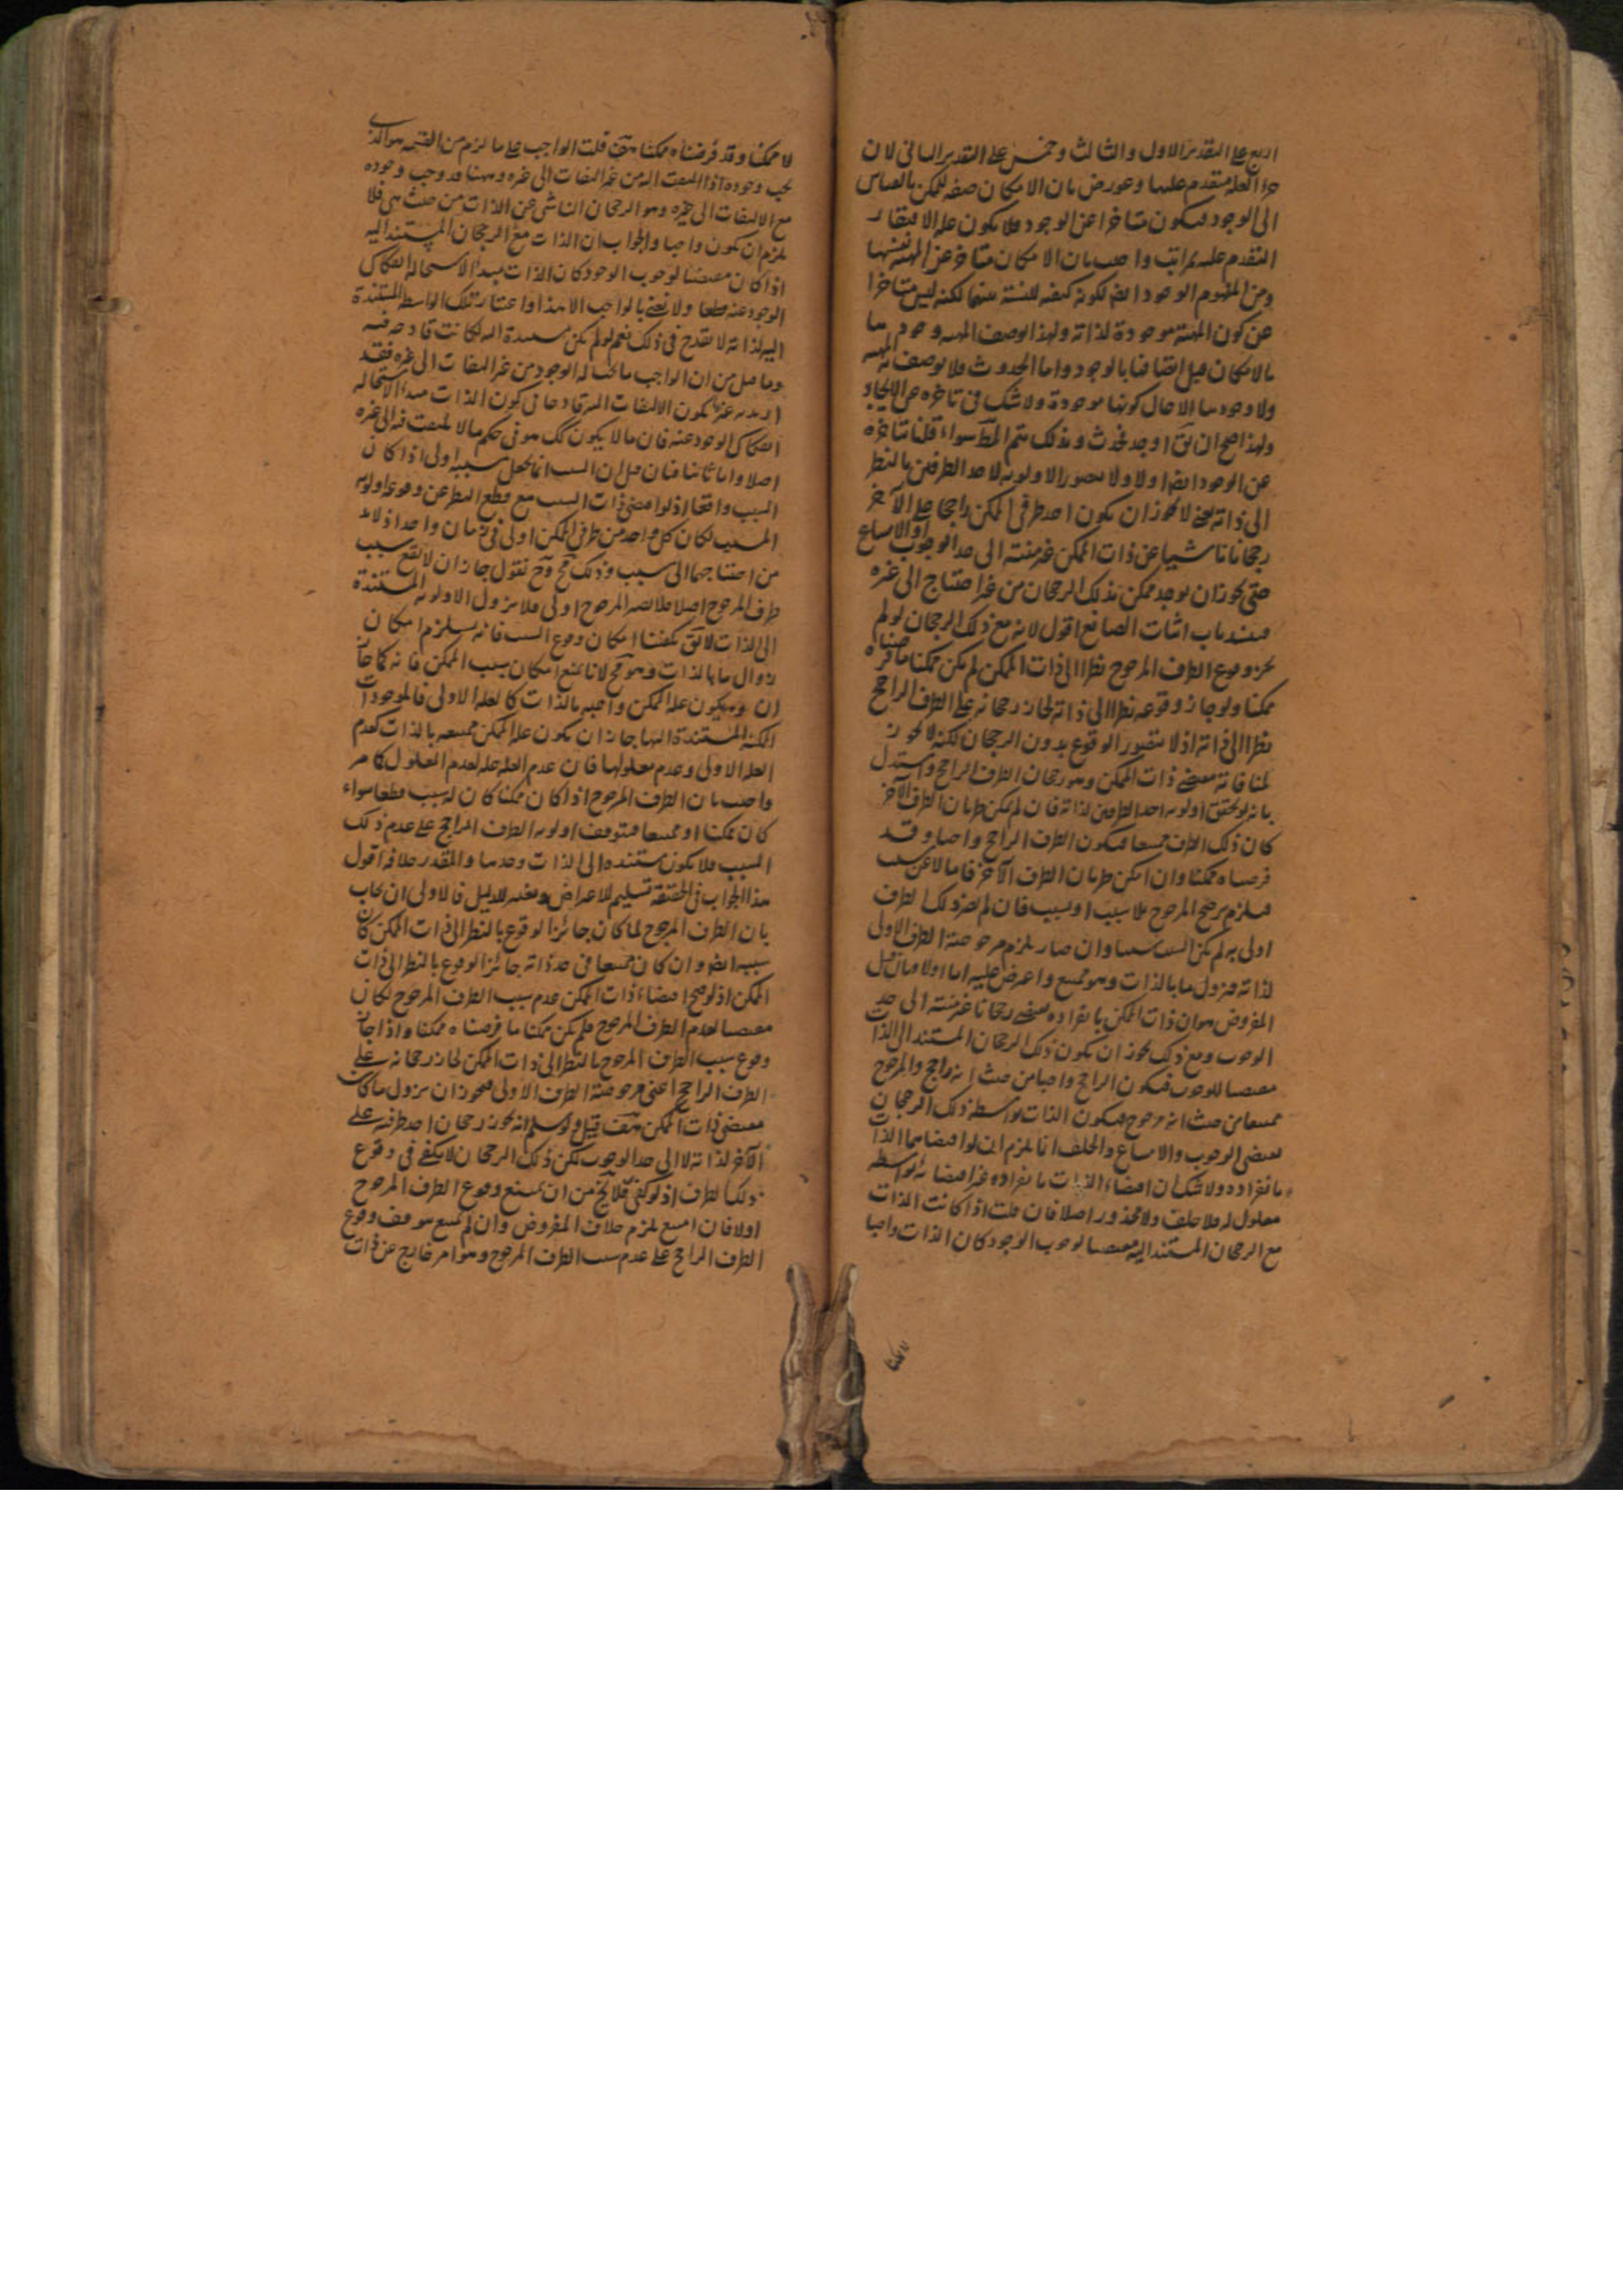 اربع على التقدير الاول والثالث وخمس على التقدير الثانى لان
جزء العلة متقدم عليها وعورض بان الامكان صفة للممكن بالقياس
الى الوجود فيكون متاخرا عن الوجود فلا يكون علة الافتقار
المتقدم عليه بمراتب واجيب بان الامكان متاخر عن المهية نفسها
وعن المفهوم الوجود ايضا لكونه كيفية للنسبة بينهما لكنه ليس متاخرا
عن كون المهية موجودة لذاته ولهذا يوصف المهية ووجودها
بالامكان قبل اتصافها بالوجود واما الحدوث فلا يوصف به المهية
ولا وجودها الا حال كونها موجودة ولا شك فى تاخره عن الايجاد
ولهذا صح ان يق اوجد فحدث وبذلك يتم المط سواء قلنا بتاخره
عن الوجود ايضا اولا ولا يتصور الاولوية لاحد الطرفين بالنظر
الى ذاته يعنى لا يجوز ان يكون احد طرفى الممكن راجحا على الآخر
رجحانا ناشيا عن ذات الممكن غير منته الى حد الوجوب او الامتناع
حتى يجوز ان يوجد ممكن بذلك الرجحان من غير احتياج الى غيره
فينسد باب اثبات الصانع اقول لانه مع ذلك الرجحان لو لم
يجز وقوع الطرف المرجوح نظرا الى ذات الممكن لم يكن ممكنا ما فرضناه
ممكنا ولو جاز وقوعه نظرا الى ذاته لجاز رجحانه على الطرف الراجح
نظرا الى ذاته اذ لا يتصور الوقوع بدون الرجحان لكنه لا يجوز
لمنافاته مقتضى ذات الممكن وهو رجحان الطرف الراجح واستدل
بانه لو تحقق اولوية احد الطرفين لذاته فان لم يمكن طريان الطرف الآخر
كان ذلك الطرف ممتنعا فيكون الطرف الراجح واجبا وقد
فرضناه ممكنا وان امكن طريان الطرف الآخر فاما لا عن سبب
فيلزم ترجح المرجوح بلا سبب او بسبب فان لم يصر ذلك الطرف
اولى به لم يكن السبب سببا وان صار يلزم مرجوحية الطرف الاولى
لذاته فيزول ما بالذات وهو ممتنع واعترض عليه اما اولا فبان قيل
المفروض هو ان ذات الممكن بانفراده يقتضى رجحانا غير منته الى حد
الوجوب ومع ذلك يجوز ان يكون ذلك الرجحان المستند الى الذات
مقتضيا للوجوب فيكون الراجح واجبا من حيث انه راجح والمرجوح
ممتنعا من حيث انه مرجوح فيكون الذات بواسطة ذلك الرجحان
يقتضى الوجوب والامتناع والخلف انما يلزم ان لو اقتضاهما الذات
بانفراده ولا شك ان اقتضاء الذات بانفراده غير اقتضائه بواسطة
معلول له فلا خلف ولا محذور اصلا فان قلت اذا كانت الذات
مع الرجحان المستند اليه مقتضيا لوجوب الوجود كان الذات واجبا
لا ممكنا
لا ممكنا وقد فرضناه ممكنا هف قلت الواجب على ما لزم من القسمة هو الذى
يجب وجوده اذا التفت اليه من غير التفات الى غيره وههنا قد وجب وجوده
مع الالتفات الى غيره وهو الرجحان الناشى عن الذات من حيث هى فلا
يلزم ان يكون واجبا والجواب ان الذات مع الرجحان المستند اليه
اذا كان مقتضيا لوجوب الوجود كان الذات مبدأ لاستحالة انفكاك
الوجود عنه قطعا ولا نعنى بالواجب الا هذا واعتبار تلك الواسطة المستندة
اليه لذاته لا يقدح فى ذلك نعم لو لم يكن مستندة اليه لكانت قادحة فيه
وما قيل من ان الواجب ما يجب له الوجود من غير التفات الى غيره فقد
اريد به غير يكون الالتفات اليه قادحا فى كون الذات مبدأ لاستحالة
انفكاك الوجود عنه فان ما لا يكون كك هو فى حكم ما لا يلتفت فيه الى غيره
اصلا واما ثانيا فبان قيل ان السبب انما يجعل مسببه اولى اذا كان
السبب واقعا اذ لو اقتضى ذات السبب مع قطع النظر عن وقوعه اولوية
المسبب لكان كل واحد من طرفى الممكن اولى فى زمان واحد اذ لا بد
من احتياجهما الى سبب وذلك مح وح نقول جاز ان لا يقع سبب
طرف المرجوح اصلا فلا يصير المرجوح اولى فلا يزول الاولوية المستندة
الى الذات لا يق يكفينا امكان وقوع السبب فانه يستلزم امكان
زوال ما بالذات وهو مح لانا نمنع امكان سبب الممكن فانه كما جاز
ان يكون علة الممكن واجبة بالذات كالعلة الاولى فالموجودات
الممكنة المستندة اليها جاز ان يكون علة الممكن ممتنعة بالذات كعدم
العلة الاولى وعدم معلولها فان عدم العلة علة لعدم المعلول كما مر
واجيب بان الطرف المرجوح اذا كان ممكنا كان له سبب قطعا سواء
كان ممكنا او ممتنعا فيتوقف اولوية الطرف الراجح على عدم ذلك
السبب فلا يكون مستندة الى الذات وحدها والمقدر خلافه اقول
هذا الجواب فى الحقيقة تسليم للاعراض وتغيير للدليل فالاولى ان يجاب
بان الطرف المرجوح لما كان جائز الوقوع بالنظر الى ذات الممكن كان
سببه ايضا وان كان ممتنعا فى حد ذاته جائز الوقوع بالنظر الى ذات
الممكن اذ لو صح اقتضاء ذات الممكن عدم سبب الطرف المرجوح لكان
مقتضيا لعدم الطرف المرجوح فلم يكن ممكنا ما فرضناه ممكنا واذا جاز
وقوع سبب الطرف المرجوح بالنظر الى ذات الممكن لجاز رجحانه على
الطرف الراجح اعنى مرجوحية الطرف الاولى فيجوز ان يزول ما كان
مقتضى ذات الممكن هف قيل ولو سلم انه يجوز رجحان احد طرفيه على
الآخر لذاته لا الى حد الوجوب لكن ذلك الرجحان لا يكفى فى وقوع
ذلك الطرف اذ لو كفى فلا يخ من ان يمتنع وقوع الطرف المرجوح
اولا فان امتنع يلزم خلاف المفروض وان لم يمتنع يتوقف وقوع
الطرف الراجح على عدم سبب الطرف المرجوح وهو امر خارج عن ذات